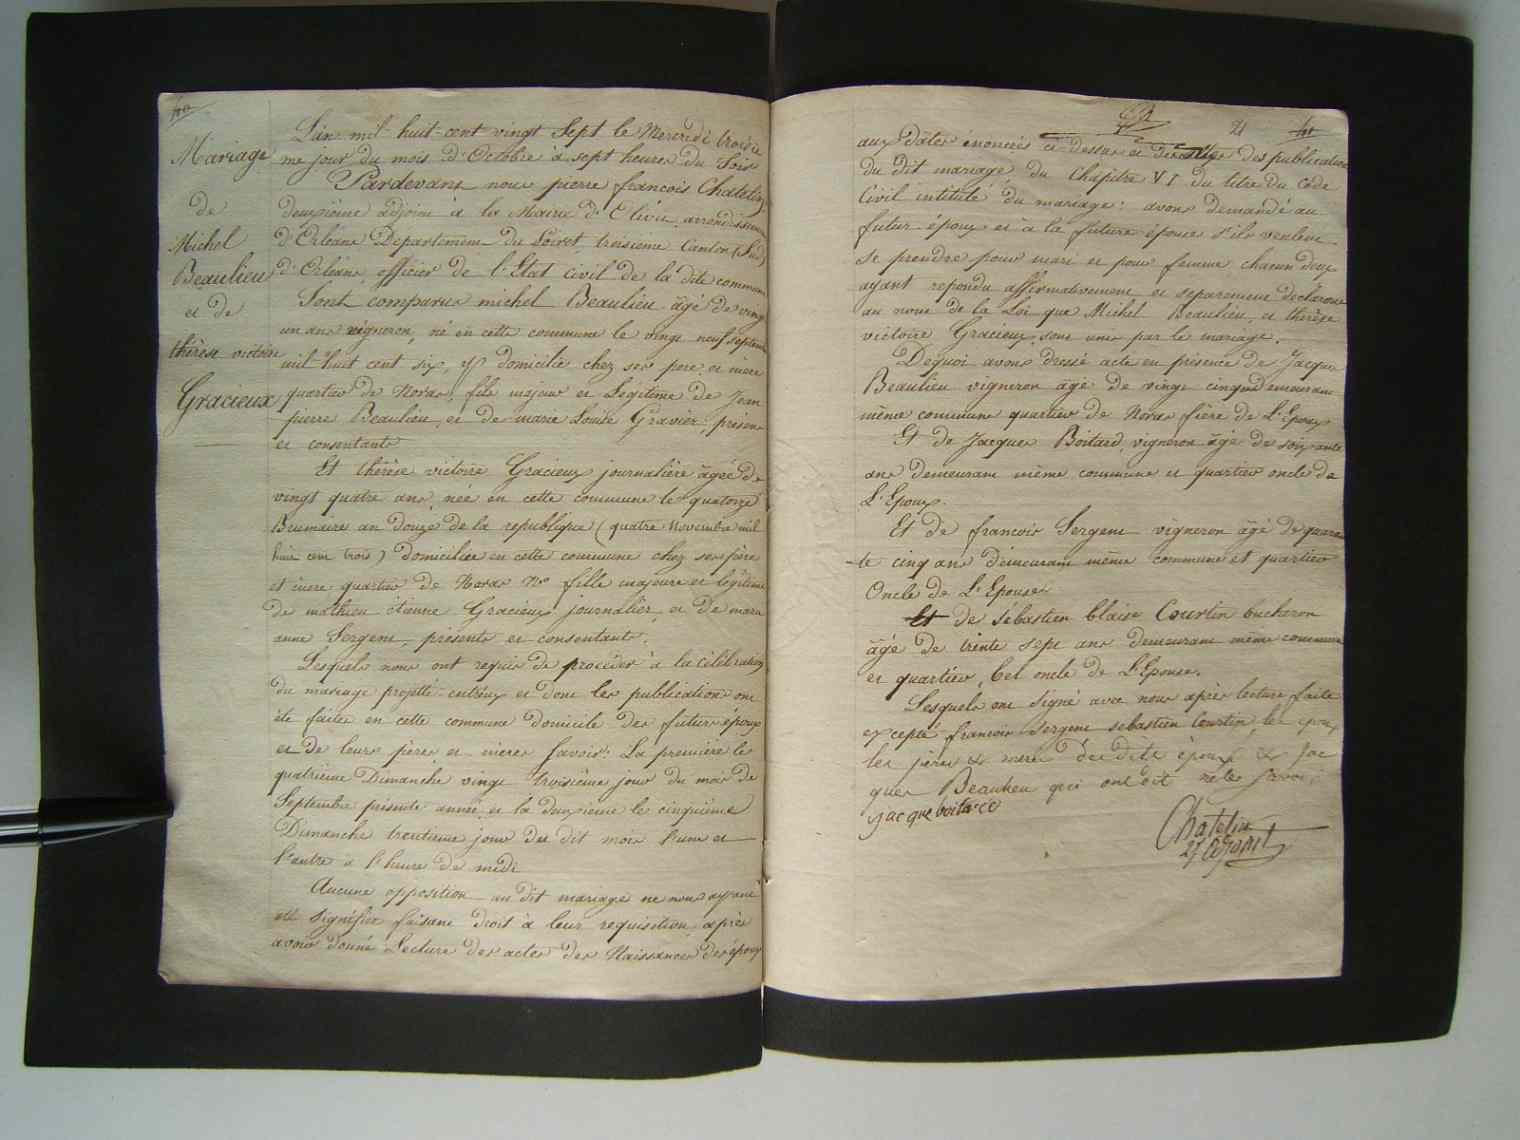 40
Mariage
de
Michel
Beaulieu
et de
thérèse victoire
Gracieux
L'an mil huit-cent vingt Sept le Mercredi troisiè
me jour du mois d'Octobre à sept heures du Soir
Pardevant nous pierre françois Chatelin
deuxième adjoint à la Mairie d'Olivet arrondissement
d'Orléans Departement du Loiret, troisieme Canton (Sud)
d'Orléans, officier de l'Etat civil de la dite commune
Sont comparus michel Beaulieu âgé de vingt
un ans vigneron, né en cette commune le vingt neuf septembre
mil huit cent six, y domicilié chez ses pere et mere
quartier de Noras, fils majeur et Légitime de Jean
pierre Beaulieu, et de marie Louise Gravier, présens
et consentants
Et thérèse victoire Gracieux journalière âgée de
vingt quatre ans, née en cette commune le quatorze
Brumaire an douze de la republique (quatre Novembre mil
huit cent trois) domiciliée en cette commune chez ses père
et mere quartier de Noras No fille majeure et legitime
de mathieu étienne Gracieux journalier, et de marie
anne Sergent, présents et consentants.
Lesquels nous ont requis de procéder à la célébration
du mariage projetté entr'eux et dont les publications ont
été faites en cette commune domicile des futurs époux
et de leurs pères et mères savoir: La première le
quatrieme Dimanche vingt troisième jour du mois de
Septembre présente année, et la deuxieme le cinquième
Dimanche trentieme jour du dit mois l'une et
l'autre à l'heure de midi
Aucune opposition au dit mariage ne nous ayant
été signifiée faisant droit à leur requisition, après
avoir donné Lecture des actes des Naissances des époux
21
41
aux dates énoncées ci-dessus et des actes des publications
du dit mariage du Chapitre VI du titre du Code
Civil intitulé du mariage: avons demandé au
futur époux et à la future épouse s'ils veulent
se prendre pour mari et pour femme chacun deux
ayant repondu affirmativement et séparément declarons
au nom de la Loi que Michel Beaulieu, et thérèse
victoire Gracieux, sont unis par le mariage.
Dequoi avons dressé acte en présence de Jacques
Beaulieu vigneron âgé de vingt cinq ans demeurant
même commune quartier de Noras frère de L'Epoux
Et de Jacques Boitard, vigneron âgé de soixante
ans demeurant même commune et quartier oncle de
L'Epoux.
Et de francois Sergent vigneron âgé de quaran
te cinq ans demeurant même commune et quartier
Oncle de L'Epouse.
Et de sébastien blaise Courtin bucheron
âgé de trente sept ans demeurant même commune
et quartier, bel oncle de L'Epouse.
Lesquels ont signé avec nous après lecture faite
excepté francois Sergent sebastien Courtin, les epoux
les pères & meres des dits époux & Jac
ques Beaulieu qui ont dit ne le savoir.
jacque boitard
Chatelin
2e adjoint